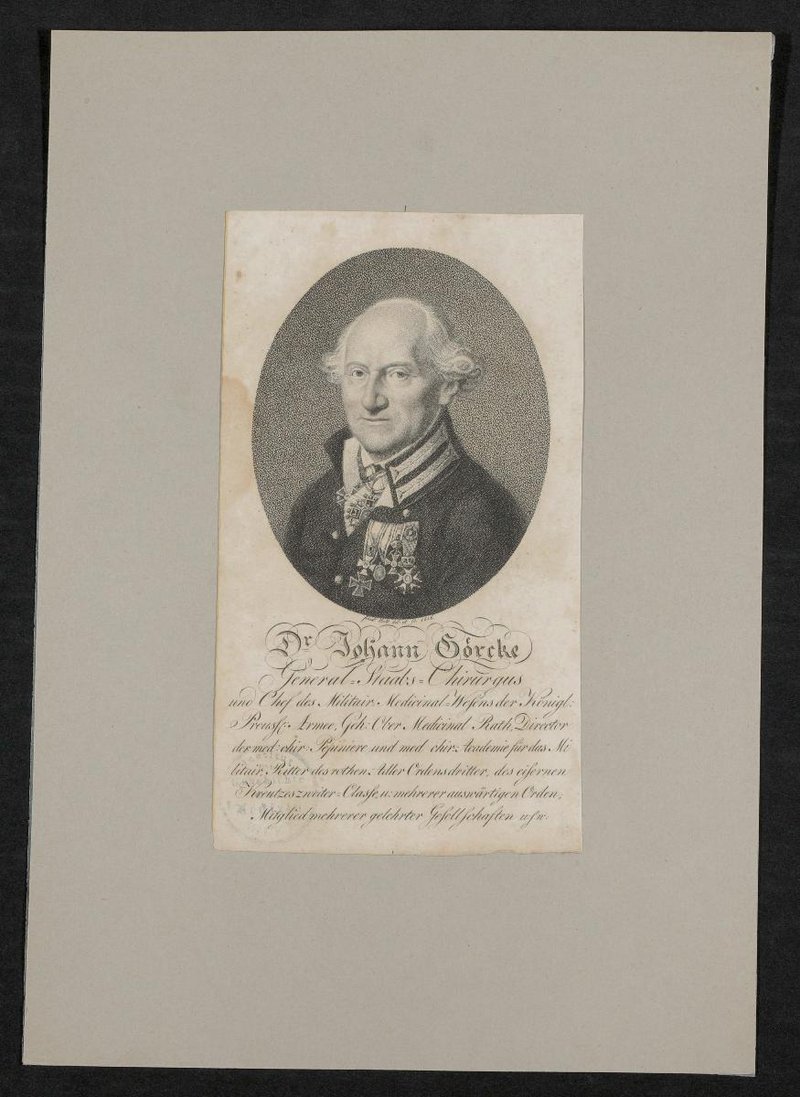 Dr Johann Görcke
General=Staabs=Chirurgus
und Chef des Militair=Medicinal=Wesens der Königl:
Preuss: Armee, Geh: Ober Medicinal Rath, Director
der med: chir: Pepiniere und med: chir: Academie für das Mi
litair, Ritter des rothen Adler Ordens dritter, des eisernen
Kreutzes zweiter=Classe, u. mehrerer auswärtigen Orden,
Mitglied mehrerer gelehrter Gesellschaften u.s.w.